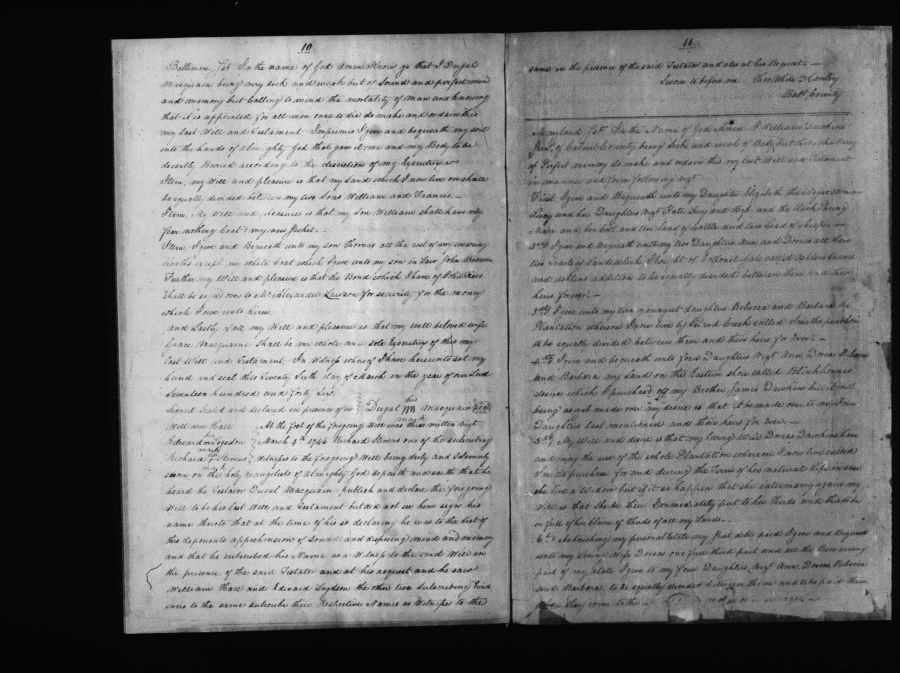 10
Baltimore Sct. In the name of God Amen Know ye that I Dugal
Macquain being very sick and weak but of Sound and perfect mind
and memory but Calling to mind the mortality of man and knowing
that it is appointed for all men once to die do make and ordain this
my last Will and Testament Imprimis I give and bequeath my soul
into the hands of almighty God that gave it me and my Body to be
decently Buried according to the discretion of my Executrix
Item, my Will and pleasure is that my Land which I now live on shall
be equally divided between my two sons William and Francis
Item My Will and pleasure is that my son William shall have my
fear nothing Coat & my new Jacket
Item I give and Bequeath unto my son Thomas all the rest of my wearing
cloaths except my white Coat which I give unto my son in Law John
Further my Will and pleasure is that the Bond which I have of
shall be signed over to Mr Alexander Lawson for security for the money
which I owe unto him
And Lastly my Will and pleasure is that my well beloved wife
Grace Macquain Shall be my whole and sole Executrix of this my
last Will and Testament In Witness whereof I have hereunto set my
hand and seal this Twenty Sixth day of March in the year of our Lord
Seventeen hundred and forty Six
Signed Sealed and declared in presence of us Dugal his mark Macquain Seal
William Hall At the foot of the foregoing Will was thus written Vizt
Edward his mark Logsdon March 1746 Richard Stevens one of the subscribing
Richard his mark Stevens Witnesses to the foregoing Will being duly and Solemnly
sworn on the holy evangelists of almighty God deposeth and saith that he
heard the Testator Dugal Macquain publish and declare the foregoing
Will to be his last Will and Testament but did not see him sign his
name thereto that at the time of his so declaring he was to the best of
this deponents apprehension of Sound and disposing mind and memory
and that he subscribed his Name as a Witness to the said Will in
the presence of the said Testator and at his request and he saw
William Hall and Edward Logsdon the other two subscribing Evid
ences to the same subscribe their Respective Names as Witnesses to the
11
same in the presence of the said Testator and also at his Request
Sworn to before me Thos White D Comry
Balt County
Maryland Sct. In the Name of God Amen I William Dawkins
of Calvert County being Sick and weak of Body but thro the mercy
of Perfect memory do make and ordain this my last Will and Testament
in manner and form following vizt
First I give and Bequeath unto my Daughter Elizabeth
Lucy and her Daughters Vizt Kate and and the Black
Mare and her Colt and ten head of Cattle and ten head of sheep
2dly I give and Bequeath unto my two Daughters Ann and Dorcas all those
two Tracts of Land which I bought of Colonel called
and addition to be equally divided between them and their
heirs forever
3dly I give unto my two youngest daughters Rebecca and Barbara the
Plantation whereon I now live by Island Creek called the purchase
to be equally divided between them and their heirs for Ever
4thly I give and bequeath unto four Daughters Vizt Ann, Dorcas Rebecca
and Barbara my Land on the Eastern Shore called
which I purchased of my Brother James Dawkins but it not
being as yet made over my desire is that it be made over to my four
Daughters last mentioned and their heirs for Ever
5thly My Will and desire is that my loving Wife Dorcas Dawkins have
and enjoy the use of the whole Plantation whereon I now live called
the purchase for and during the Term of her natural life in case
she live a Widow but if it so happen that she intermarry again my
Will is that She be then Immediately put to her Thirds and this to be
in full of her Claim of Thirds of all my Lands
6thly As touching my personal Estate my Just debts paid I give and Bequeath
unto my Loving Wife Dorcas one full third part and all the Remaining
part of my Estate I give to my four Daughters, Vizt Ann, Dorcas, Rebecca
and Barbara to be equally divided between them and to be paid them
they come to the